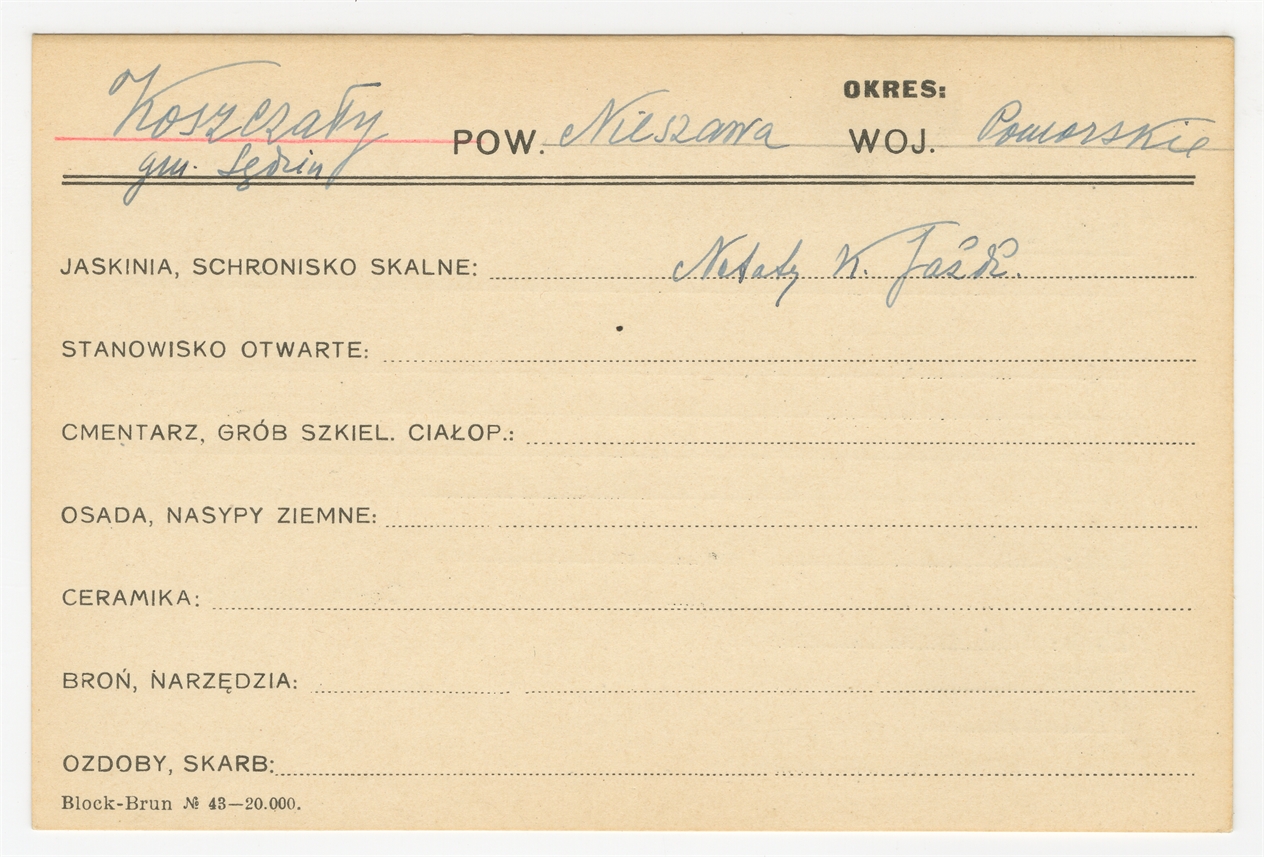 OKRES:
Koszczały POW. Nieszawa WOJ. Pomorskie
gm. Sędzin
JASKINIA, SCHRONISKO SKALNE: Notaty K. Jażdż.
STANOWISKO OTWARTE:
CMENTARZ, GRÓB SZKIEL. CIAŁOP.:
OSADA, NASYPY ZIEMNE:
CERAMIKA:
BROŃ, NARZĘDZIA:
OZDOBY, SKARB:
Block-Brun № 43—20.000.